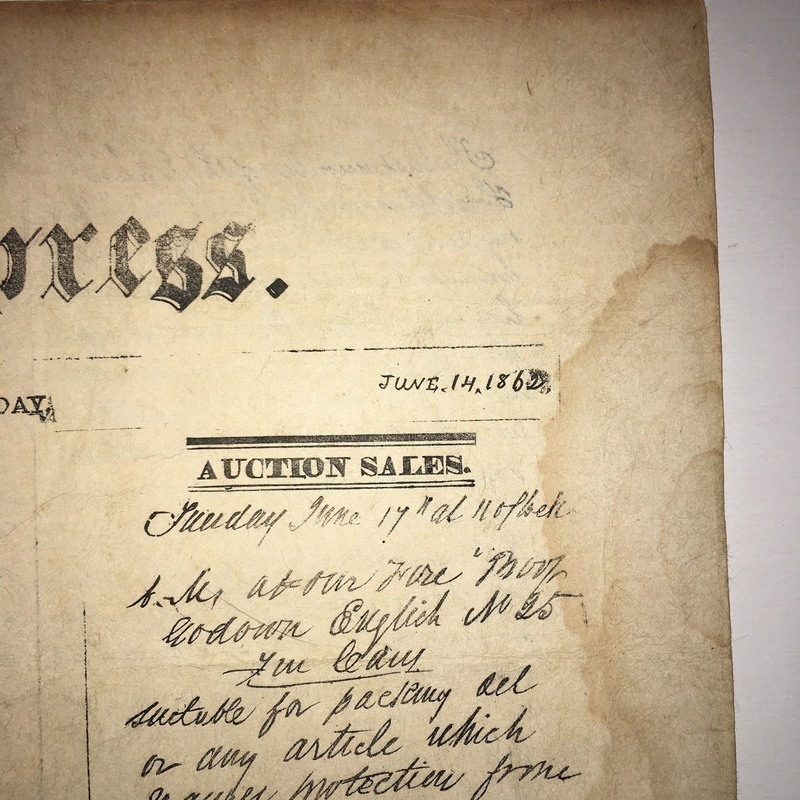 press.
DAY,
JUNE. 14. 1862,
AUCTION SALES.
June 17th at 11 o'clock
at our Fire Proof
Godown English No 25
Tin Cans
suitable for packing
or any article which
protection from